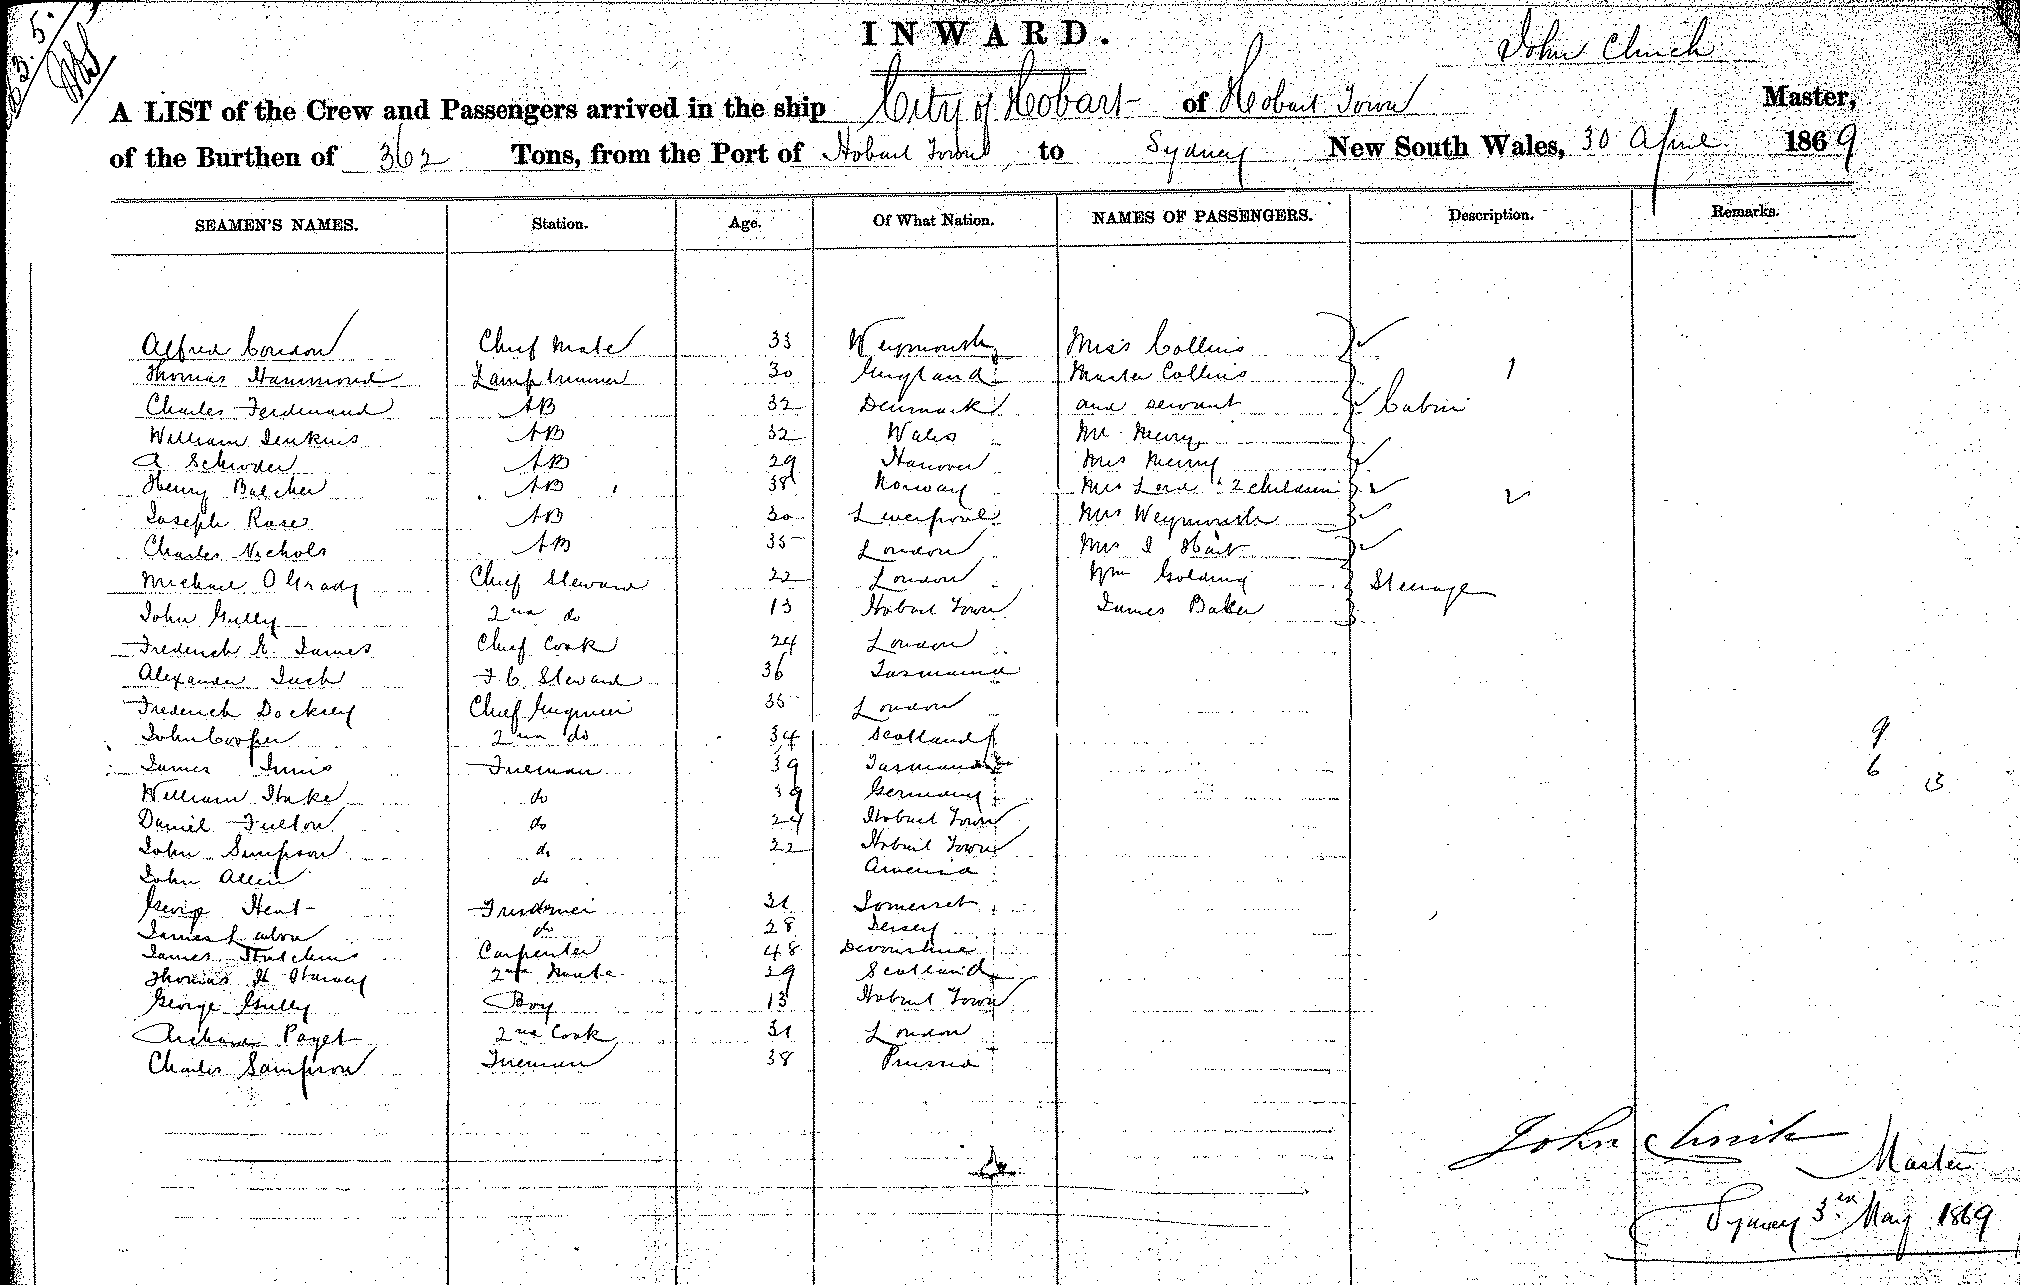 INWARD.
John Clinch
A LIST of the Crew and Passengers arrived in the ship City of Hobart of Hobart Town Master,
of the Burthen of 362 Tons, from the Port of Hobart Town to Sydney New South Wales, 30 April 1869
SEAMEN'S NAMES. Station. Age. Of What Nation. NAMES OF PASSENGERS. Description. Remarks.
Alfred Condon Chief Mate 33 Weymouth Miss Collins
Thomas Hammond Lamp trimmer 30 England Master Collins 1
Charles Ferdinand AB 32 Denmark and servant Cabin
William Jenkins AB 32 Wales Mr Merry
A Schroder AB 29 Hanover Mrs Merry
Henry Balcher AB 38 Norway Mrs Lord & 2 children 2
Joseph Rose AB 30 Liverpool Mrs Weymouth
Charles Nichols AB 35 London Mrs J Hart
Michael O Grady Chief Steward 22 London Wm Golding Steerage
John Gully 2nd do 13 Hobart Town James Baker
Frederick E. James Chief Cook 24 London
Alexander F. C. Steward 36 Tasmania
Frederick Docksey Chief Engineer 35 London
John Cooper 2nd do 34 Scotland 9
James Innis Fireman 39 Tasmania 6 13
William Hake do 39 Germany
Daniel Fulton do 24 Hobart Town
John Simpson do 22 Hobart Town
John Allen do America
George Hent 31 Somerset
James do 28 Jersey
James Hutchins Carpenter 48 Devonshire
Thomas H Harvey 2nd Mate 29 Scotland
George Gully Boy 13 Hobart Town
Richard Paget 2nd Cook 31 London
Charles Sampson Fireman 38 Prussia
John Clinch
Master
Sydney 3rd May 1869